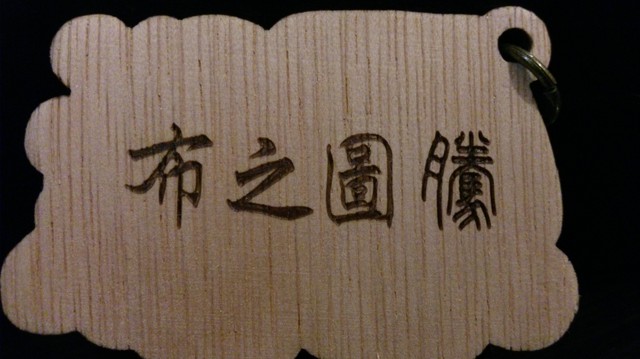 布之圖騰